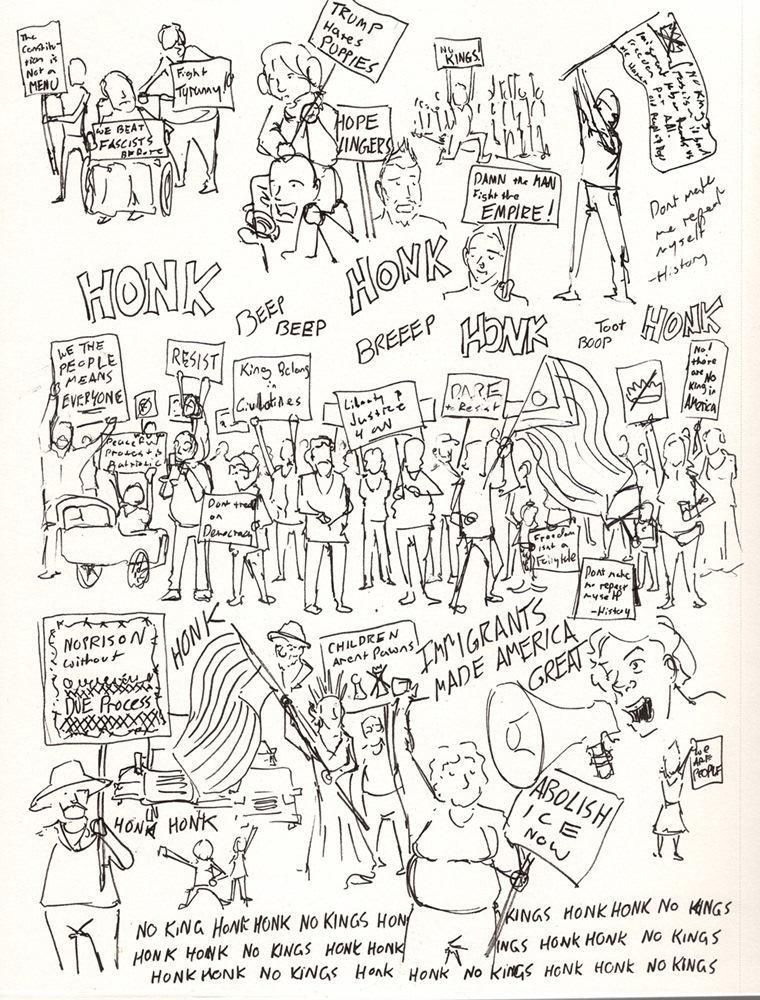 The
Constitu-
tion is
Not a
MENU
Fight
Tyranny!
WE BEAT
FASCISTS
BEFORE
TRUMP
Hates
PUPPIES
HOPE
NO
KINGS!
DAMN the MAN
Fight the
EMPIRE!
Dont make
me repeat
myself
-History
HONK
BEEP
BEEP
HONK
BREEEP
HONK
Toot
BOOP
HONK
WE THE
PEOPLE
MEANS
EVERYONE
RESIST
King Belong
in
Liberty &
Justice
4 All
DARE
to Resist
No!
there
are NO
King in
AMERICA
Peaceful
Protest is
Patriotic
Dont tred
on
Democracy
Freedom
isnt a
Fairytale
Dont make
me repeat
myself
-History
NO PRISON
without
DUE Process
HONK
CHILDREN
Arent Pawns
IMMIGRANTS
MADE AMERICA
GREAT
We
ARE
PEOPLE
ABOLISH
ICE
NOW
HONK HONK
NO KING HONK HONK NO KINGS HON KINGS HONK HONK NO KINGS
HONK HONK NO KINGS HONK HONK NGS HONK HONK NO KINGS
HONK HONK NO KINGS Honk HONK NO KINGS HONK HONK NO KINGS